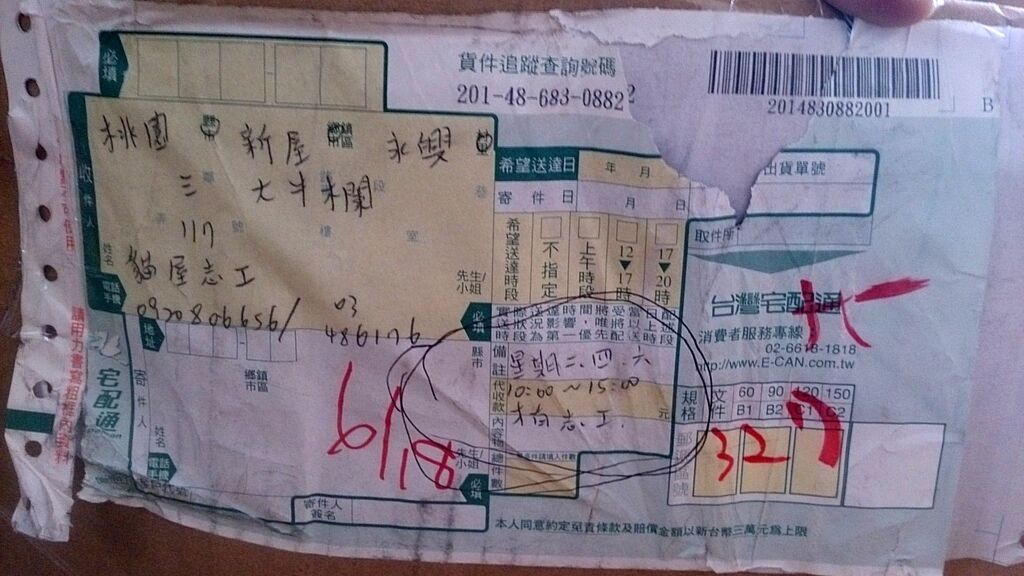 必填
貨件追蹤查詢號碼
201-48-683-0882 2
2014830882001
B
收件人
桃園 縣市 新屋 鄉鎮市區 永興
三 大牛欄 段 巷
117 號 樓 室
姓名
貓屋志工
先生/小姐
電話
手機
0920806656/
03
486176
必填
希望送達日 年 月
寄件日 月 日
希望送達時段
不指定
上午時段
12▼17時
17▼20時
出貨單號
取件所
台灣宅配通
消費者服務專線
02-6618-1818
http://www.E-CAN.com.tw
宅配通
寄件人
地址
縣市
鄉鎮市區
姓名
電話
先生/小姐
必填
備註
星期二、四、六
代收款
10:00~15:00
元
內容物
才有志工.
總件數
6/18
規格
文件 60 B1 90 B2 120 150
327
寄件人簽名
本人同意約定至責條款及賠償金額以新台幣三萬元為上限